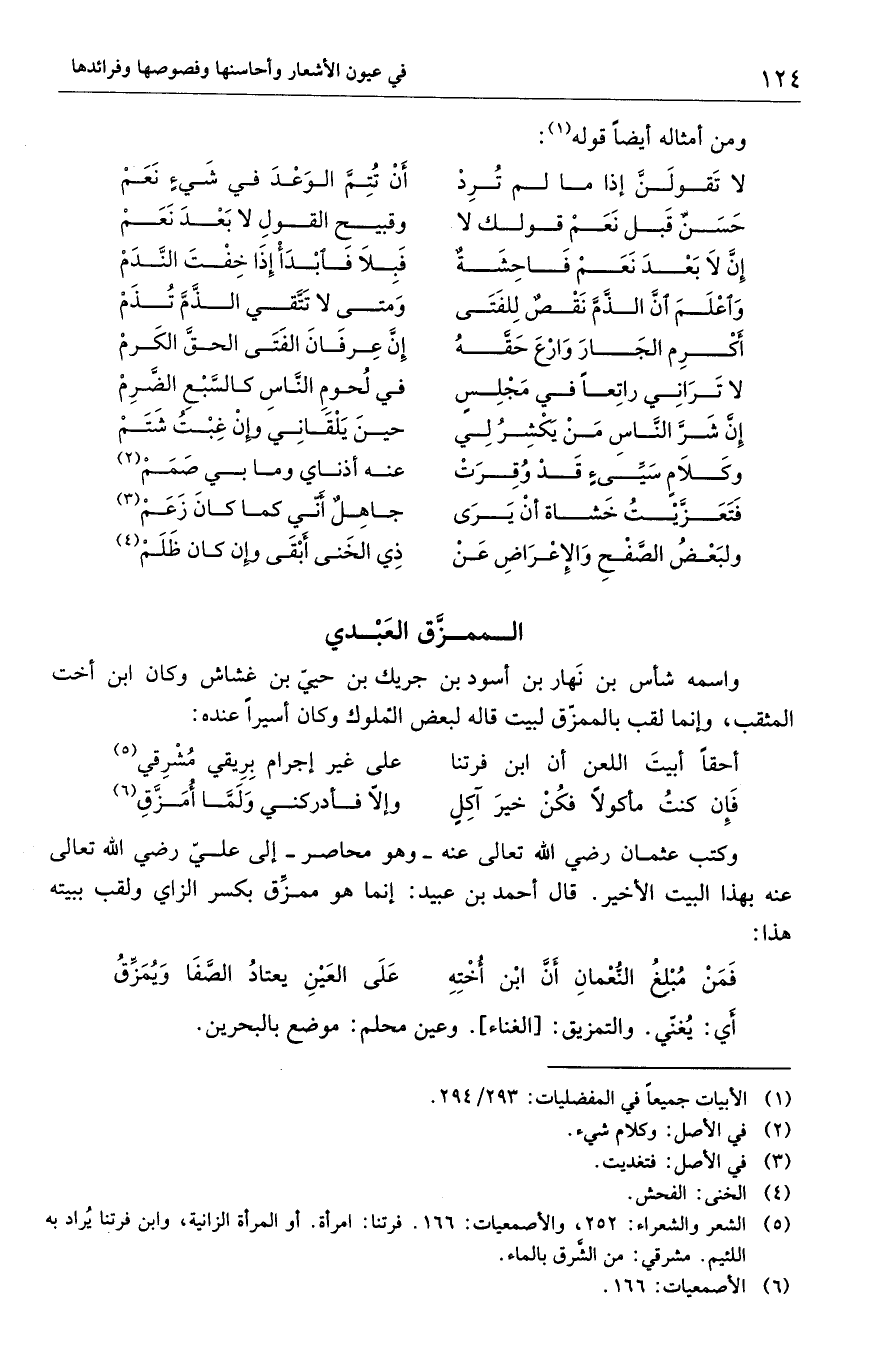 ١٢٤ في عيون الأشعار وأحاسنها وفصوصها وفرائدها
ومن أمثاله أيضاً قوله(١):
لا تَقــولَــنَّ إذا مــا لــم تُــرِدْ أَنْ تُتِــمَّ الــوَعْــدَ فــي شَــيءٍ نَعَــمْ
حَسَــنٌ قَبــل نَعَــمْ قــولــك لا وقبيــح القــولِ لا بَعْــدَ نَعَــمْ
إنَّ لاَ بَعْــدَ نَعَــمْ فَــاحِشَــةٌ فَبِــلاَ فَــٱبْــدَأْ إذَا خِفْــتَ النَّــدَمْ
وَٱعْلَــمَ ٱنَّ الــذَّمَّ نَقْــصٌ لِلفَتَــى وَمتــى لا تَتَّقــي الــذَّمَّ تُــذَمْ
أَكْــرِمِ الجَــارَ وَارْعَ حَقَّــهُ إنَّ عِــرفَــانَ الفَتَــى الحــقَّ الكَــرمْ
لا تَــرَانِــي راتِعــاً فــي مَجْلِــسٍ فــي لُحــومِ النَّــاسِ كــالسَّبْعِ الضَّرِمْ
إنَّ شَــرَّ النَّــاسِ مَــنْ يَكْشِــرُ لِــي حيــنَ يَلْقَــانِــي وإنْ غِبْــتُ شَتَــمْ
وكَــلاَمٍ سَيِّــىءٍ قَــدْ وُقِــرَتْ عنــه أذنــاي ومــا بــي صَمَــمْ(٢)
فَتَعَــزَّيْــتُ خَشــاة أنْ يَــرَى جــاهِــلٌ أَنّــي كمــا كــانَ زَعَــمْ(٣)
ولبَعْــضُ الصَّفْــحِ وَالإعْــرَاضِ عَــنْ ذِي الخَنــى أَبْقَــى وإن كــان ظَلَــمْ(٤)
الــممــزَّق العَبْــدي
واسمه شأس بن نَهار بن أسود بن جريك بن حييّ بن غشاش وكان ابن أخت
المثقب، وإنما لقب بالممزّق لبيت قاله لبعض المُلوك وكان أسيراً عنده:
أحقاً أبيتَ اللعن أن ابن فرتنا على غير إجرام بِريقي مُشْرِقي(٥)
فَإِن كنتُ مأكولاً فكُنْ خيرَ آكِلٍ وإلاّ فــأدركنــي وَلَمَّــا أُمَــزَّقِ(٦)
وكتب عثمــان رضي الله تعالى عنه ــ وهو محاصــر ــ إلى علــيّ رضي الله تعالى
عنه بهذا البيت الأخير. قال أحمد بن عبيد: إنما هو ممــزِّق بكسر الزاي ولقب ببيته
هذا:
فَمَنْ مُبْلِغُ النُّعْمانِ أَنَّ ابْن أُخْتِهِ عَلَى العَيْنِ يعتادُ الصَّفَا وَيُمَزِّقُ
أَي: يُغنّي. والتمزيق: [الغناء]. وعين محلم: موضع بالبحرين.
(١) الأبيات جميعاً في المفضليات: ٢٩٣/ ٢٩٤.
(٢) في الأصل: وكلام شيء.
(٣) في الأصل: فتغديت.
(٤) الخنى: الفحش.
(٥) الشعر والشعراء: ٢٥٢، والأصمعيات: ١٦٦. فرتنا: امرأة. أو المرأة الزانية، وابن فرتنا يُراد به
اللئيم. مشرقي: من الشَّرق بالماء.
(٦) الأصمعيات: ١٦٦.